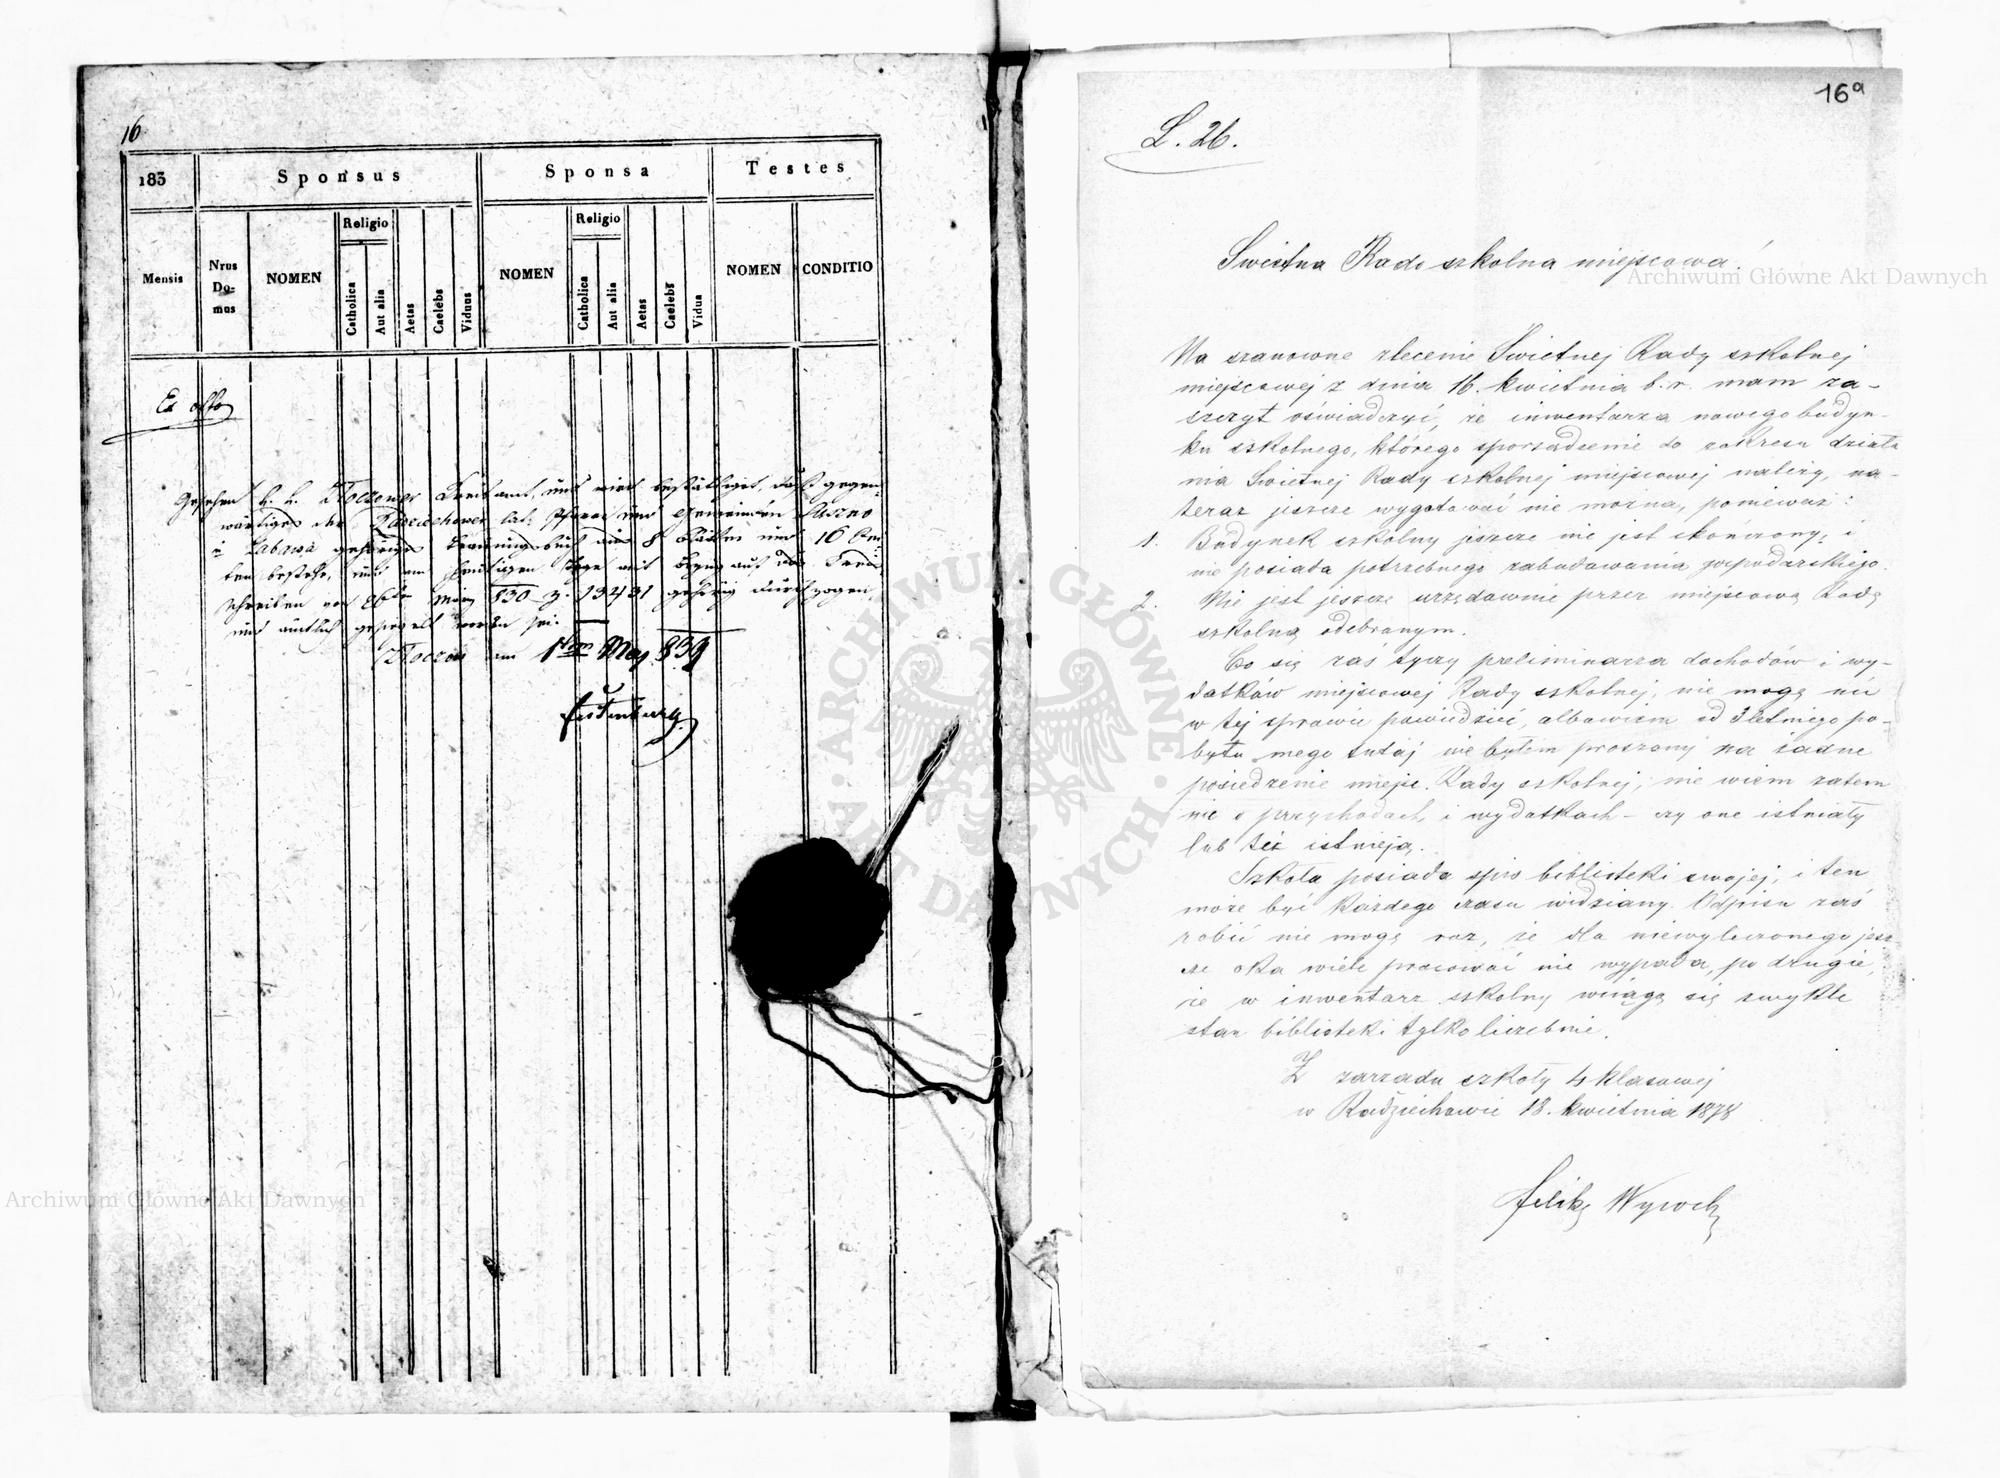 16
183
Sponsus
Sponsa
Testes
Mensis
Nrus Do- mus
NOMEN
Religio
Catholica
Aut alia
Aetas
Caelebs
Viduus
NOMEN
Religio
Catholica
Aut alia
Aetas
Caelebs
Vidua
NOMEN
CONDITIO
Ex offo
Gesehen k. k. Zloczower Kreisamt, und wird bestättiget, daß gegen-
wärtiges der Radziechower lat. Pfarre und Gemeinden
u gehörige Trauungsbuch aus 8 Blätter und 16 Sei-
ten bestehe, und am heutigen Tage mit Bezug auf das Kreis-
schreiben vom März 830 Z. gehörig durchzogen,
und amtlich gesiegelt worden sei.
Zloczow am 1ten May 839
16a
L. 26.
Świetna Rado szkolna miejscowa!
Na szanowne zlecenie Świetnej Rady szkolnej
miejscowej z dnia 16. kwietnia b. r. mam za-
szczyt oświadczyć, że inwentarza nowego budyn-
ku szkolnego, którego sporządzenie do zakresu działa
nia Świetnej Rady szkolnej miejscowej należy, na-
teraz jeszcze wygotować nie można, ponieważ:
1. Budynek szkolny jeszcze nie jest skończony, i
nie posiada potrzebnego zabudowania gospodarskiego.
2. Nie jest jeszcze urzędownie przez miejscową Radę
szkolną odebranym.
Co się zaś tyczy preliminarza dochodów i wy-
datków miejscowej Rady szkolnej, nie mogę nic
w tej sprawie powiedzieć, albowiem od 3 letniego po-
bytu mego tutaj nie byłem proszony na żadne
posiedzenie miejsc. Rady szkolnej, nie wiem zatem
nic o przychodach i wydatkach – czy one istniały
lub też istnieją.
Szkoła posiada spis biblioteki swojej, i ten
może być każdego czasu widziany. Odpisu zaś
robić nie mogę raz, że dla niewyleczonego jesz-
cze oka wiele pracować nie wypada, po drugie,
że w inwentarz szkolny wciąga się zwykle
stan biblioteki tylko liczebnie.
Z zarządu szkoły 4 klasowej
w Radziechowie 18. kwietnia 1878
Feliks
Archiwum Główne Akt Dawnych
Archiwum Główne Akt Dawnych
ARCHIWUM GŁÓWNE AKT DAWNYCH